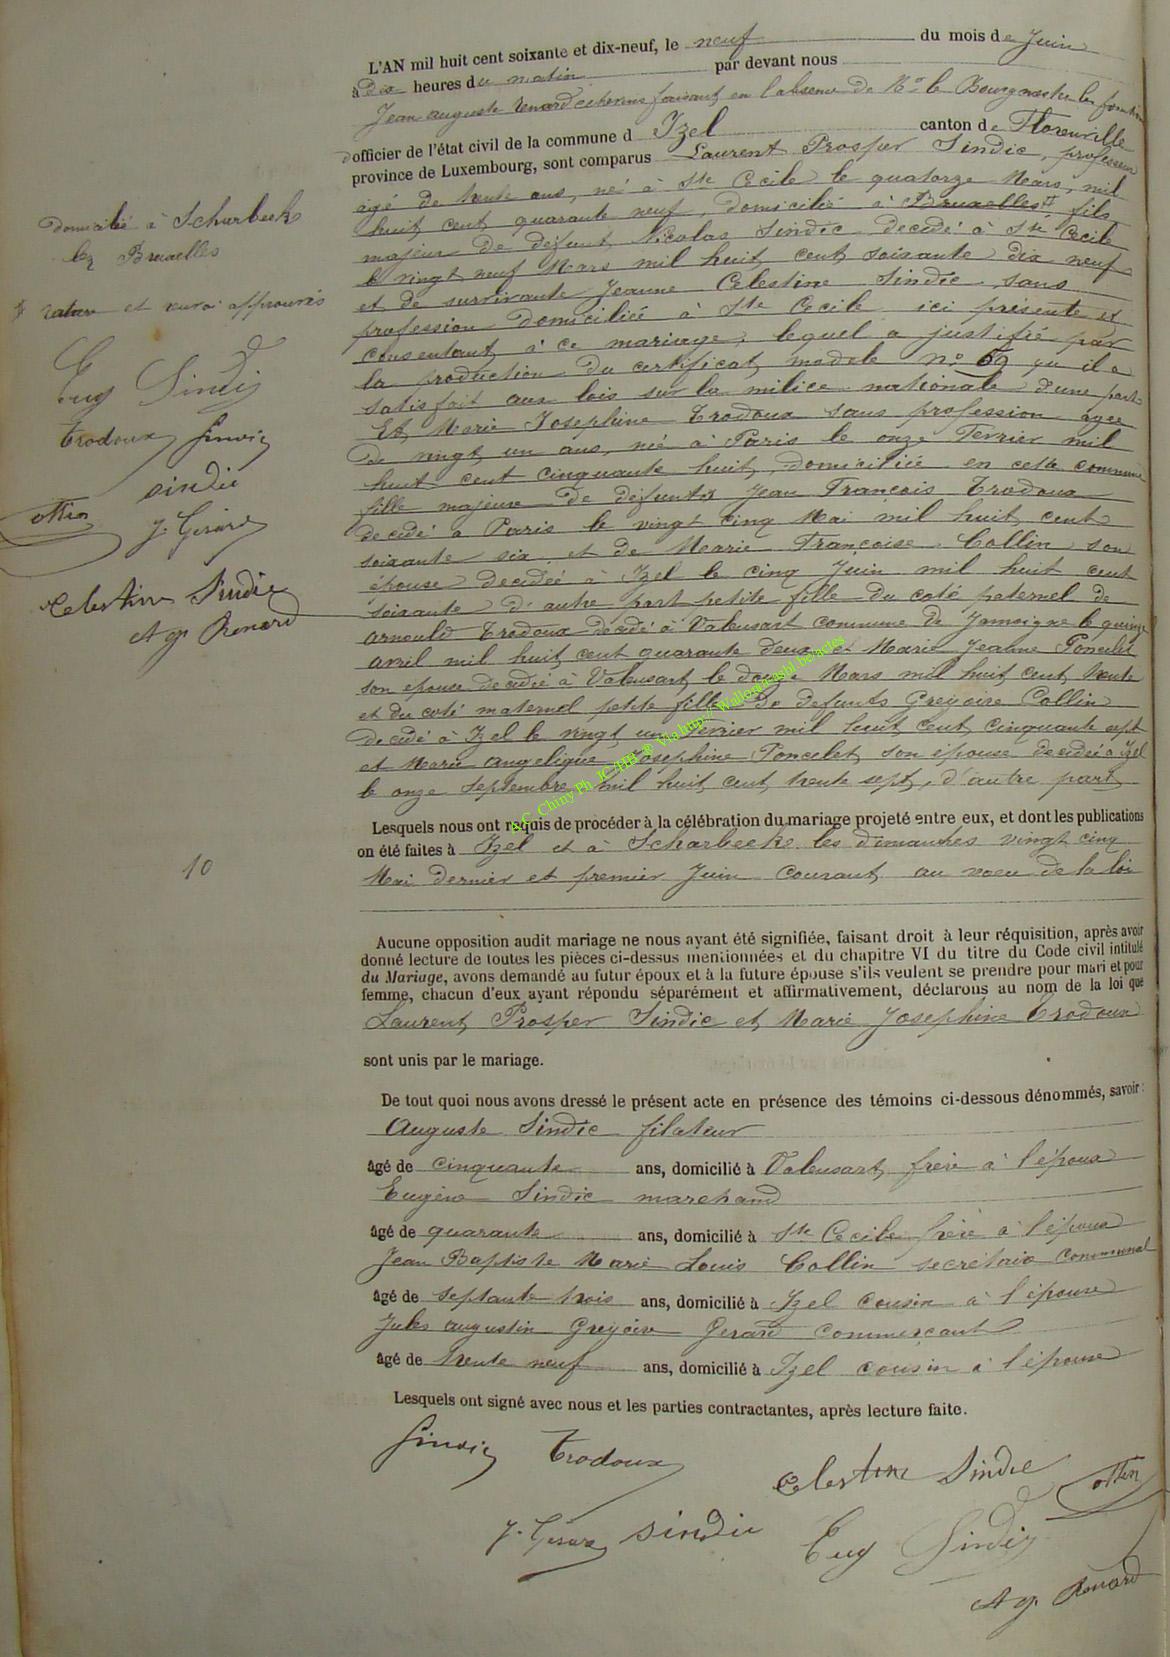 L'AN mil huit cent soixante et dix-neuf, le neuf du mois de Juin
à dix heures du matin par devant nous
Jean auguste Renard echevin faisant en l'absence de Mr le Bourgmestre les fonctions
d'officier de l'état civil de la commune d Izel canton de Florenville
province de Luxembourg, sont comparus Laurent Prosper Sindic, professeur
âgé de trente ans, né à Ste Cecile le quatorze Mars, mil
huit cent quarante neuf, domicilié à Bruxelles # fils
majeur de défunt Nicolas Sindic decédé à Ste Cecile
le vingt neuf Mars mil huit cent soixante dix neuf
et de survivante Jeanne Celestine Sindic, sans
profession domiciliée à Ste Cecile ici présente et
consentant à ce mariage, lequel a justifié par
la production du certificat modele no 69 qu'il a
satisfait aux lois sur la milice nationale d'une part
Et Marie Josephine Trodoux sans profession agée
de vingt un ans, née à Paris le onze Fevrier mil
huit cent cinquante huit, domiciliée en cette commune
fille majeure de défunts Jean François Trodoux
decédé à Paris le vingt cinq Mai mil huit cent
soixante six et de Marie Françoise Collin son
épouse decédée à Izel le cinq Juin mil huit cent
soixante d'autre part petite fille du coté paternel de
Arnould Trodoux decédé à Valensart commune de Jamoigne le quinze
avril mil huit cent quarante deux et Marie Jeanne Poncelet
son epouse decedée à Valensart le douze Mars mil huit cent trente
et du coté maternel petite fille de defunts Gregoire Collin
decédé à Izel le vingt un Fevrier mil huit cent cinquante sept
et Marie angelique Josephine Poncelet son épouse decedée à Izel
le onze septembre mil huit cent trente sept, d'autre part
Lesquels nous ont requis de procéder à la célébration du mariage projeté entre eux, et dont les publications
on été faites à Izel et à Scharbeek les dimanches vingt cinq
Mai dernier et premier Juin courant au voeu de la loi
Aucune opposition audit mariage ne nous ayant été signifiée, faisant droit à leur réquisition, après avoir
donné lecture de toutes les pièces ci-dessus mentionnées et du chapitre VI du titre du Code civil intitulé
du Mariage, avons demandé au futur époux et à la future épouse s'ils veulent se prendre pour mari et pour
femme, chacun d'eux ayant répondu séparément et affirmativement, déclarons au nom de la loi que
Laurent Prosper Sindic et Marie Josephine Trodoux
sont unis par le mariage.
De tout quoi nous avons dressé le présent acte en présence des témoins ci-dessous dénommés, savoir :
Auguste Sindic filateur
âgé de cinquante ans, domicilié à Valensart, frère à l'époux
Eugène Sindic marchand
âgé de quarante ans, domicilié à Ste Cecile frère à l'époux
Jean Baptiste Marie Louis Collin secrétaire communal
âgé de septante trois ans, domicilié à Izel cousin à l'épouse
Jules augustin Gregoire Gerard commerçant
âgé de trente neuf ans, domicilié à Izel cousin à l'épouse
Lesquels ont signé avec nous et les parties contractantes, après lecture faite.
Sindic Trodoux
Celestine Sindic
J. Gérard Sindic
Eug Sindic
A g. Renard
domicilié à Scharbeek
lez Bruxelles
# rature et renvoi approuvés
Eug Sindic
Trodoux Sindic
sindic
J. Gérard
Celestine Sindic
A g. Renard
10
A.C. Chiny Ph. JC-HB ® Via http://Wallonia-asbl.be/actes